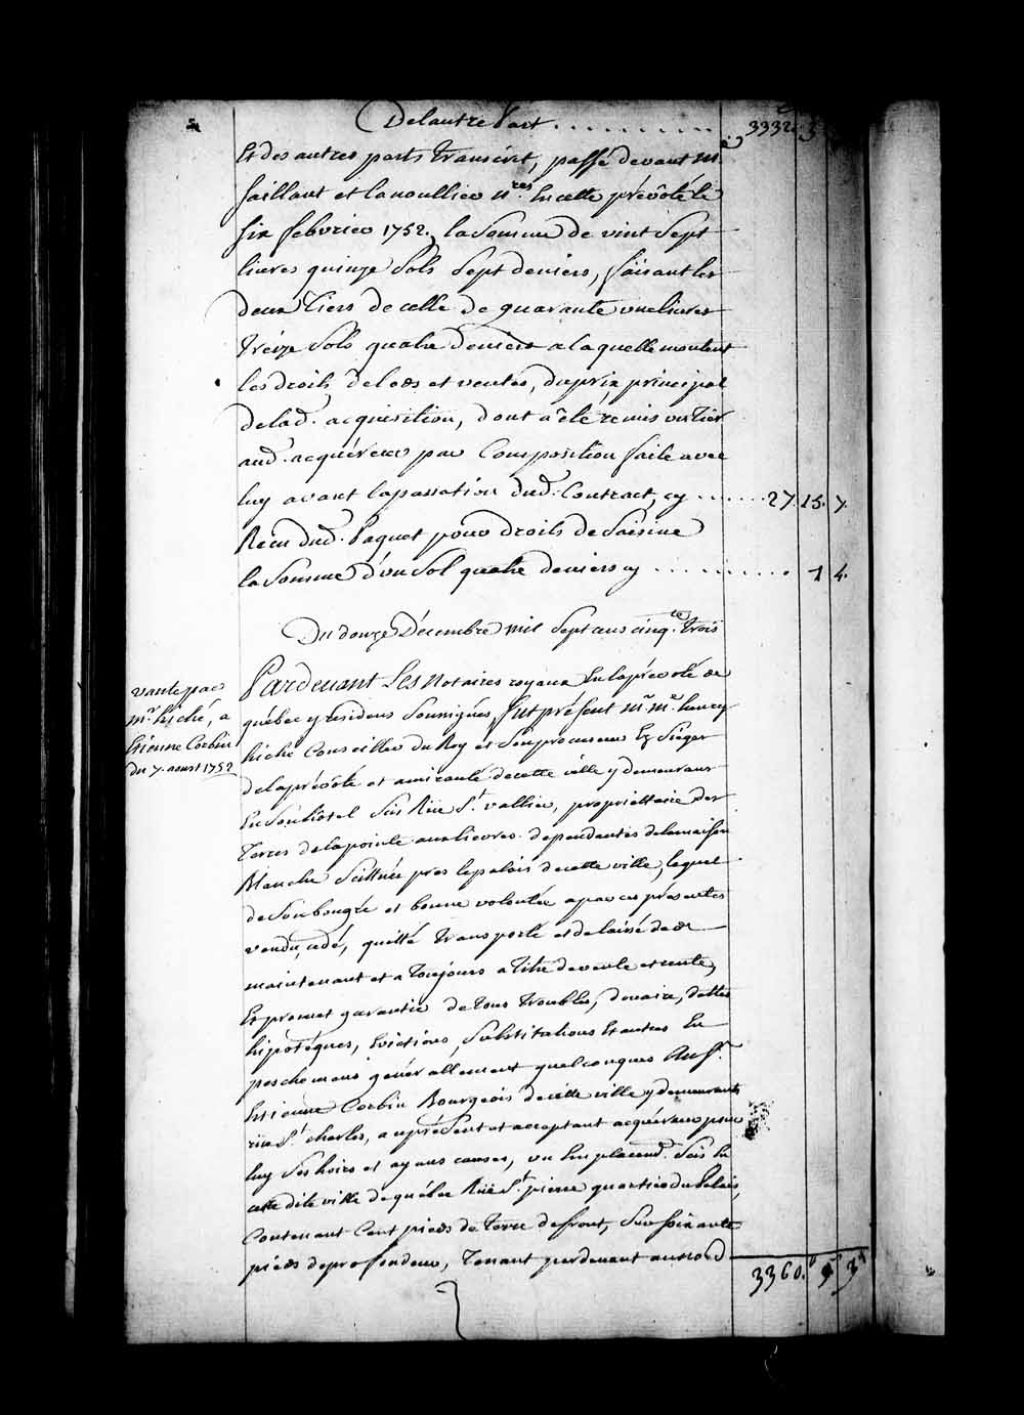 De lautre Part . . . . . . . . . . 3332. 3
Et des autres parts transcrit, passé devant Me
Saillant et Lanoullier Nres. En cette prévôté le
six febvrier 1752., la Somme de vint Sept
livres quinze Sols Sept deniers, faisant les
deux Tiers de celle de quarante une livres
treize Sols quatre deniers a laquelle montent
les droits de lods et ventes, du prix principal
de lad. acquisition, dont a été remis un tier
aud. acquéreur par Composition faite avec
luy avant la passation dud. Contract, cy . . . . . . 27. 15. 7.
Recu dud. Paquet pour droits de Saisine
la Somme d'un Sol quatre deniers cy . . . . . . . . . . 1 4.
Du douze Décembre mil Sept cens cinqte. trois
vante par
Mr. hiché, a
Etienne Corbin
du 7. aoust 1752
Pardevant Les Notaires royaux En la prévoté de
québec y residens Soussignés, fut présent Mr. Me. henry
hiché Conseiller du Roy et Son procureur Ez Sieges
de la prévôté et amirauté de cette ville y demeurant
En Son hotel Sis Rüe St. vallier, propriettaire des
Terres de la pointe aux lievres dependantes de la maison
Blanche Scittuée pres le palais de cette ville, lequel
de Son bon gré et bonne volontée a par ces présentes
vendu, cédé, quitté transporté et delaissé des
maintenant et a Toujours a titre de vente et rente,
Et promet garantir de tous troubles, douaire, dettes
hipotéques, Evictions, Substitutions Et autres En
peschemens générallement quelconques Au Sr.
Estienne Corbin Bourgeois de cette ville y demeurant
rüe St. charles, a ce présent et acceptant acquéreur pour
luy Ses hoirs et ayans causes, un Emplacemt. Scis En
cette dite ville de québec Rüe St. pierre quartier du Palais,
Contenant Cent pieds de Terre de front, Sur Soixante
pieds de profondeur, Tenant par devant au nord
3360. 9 3